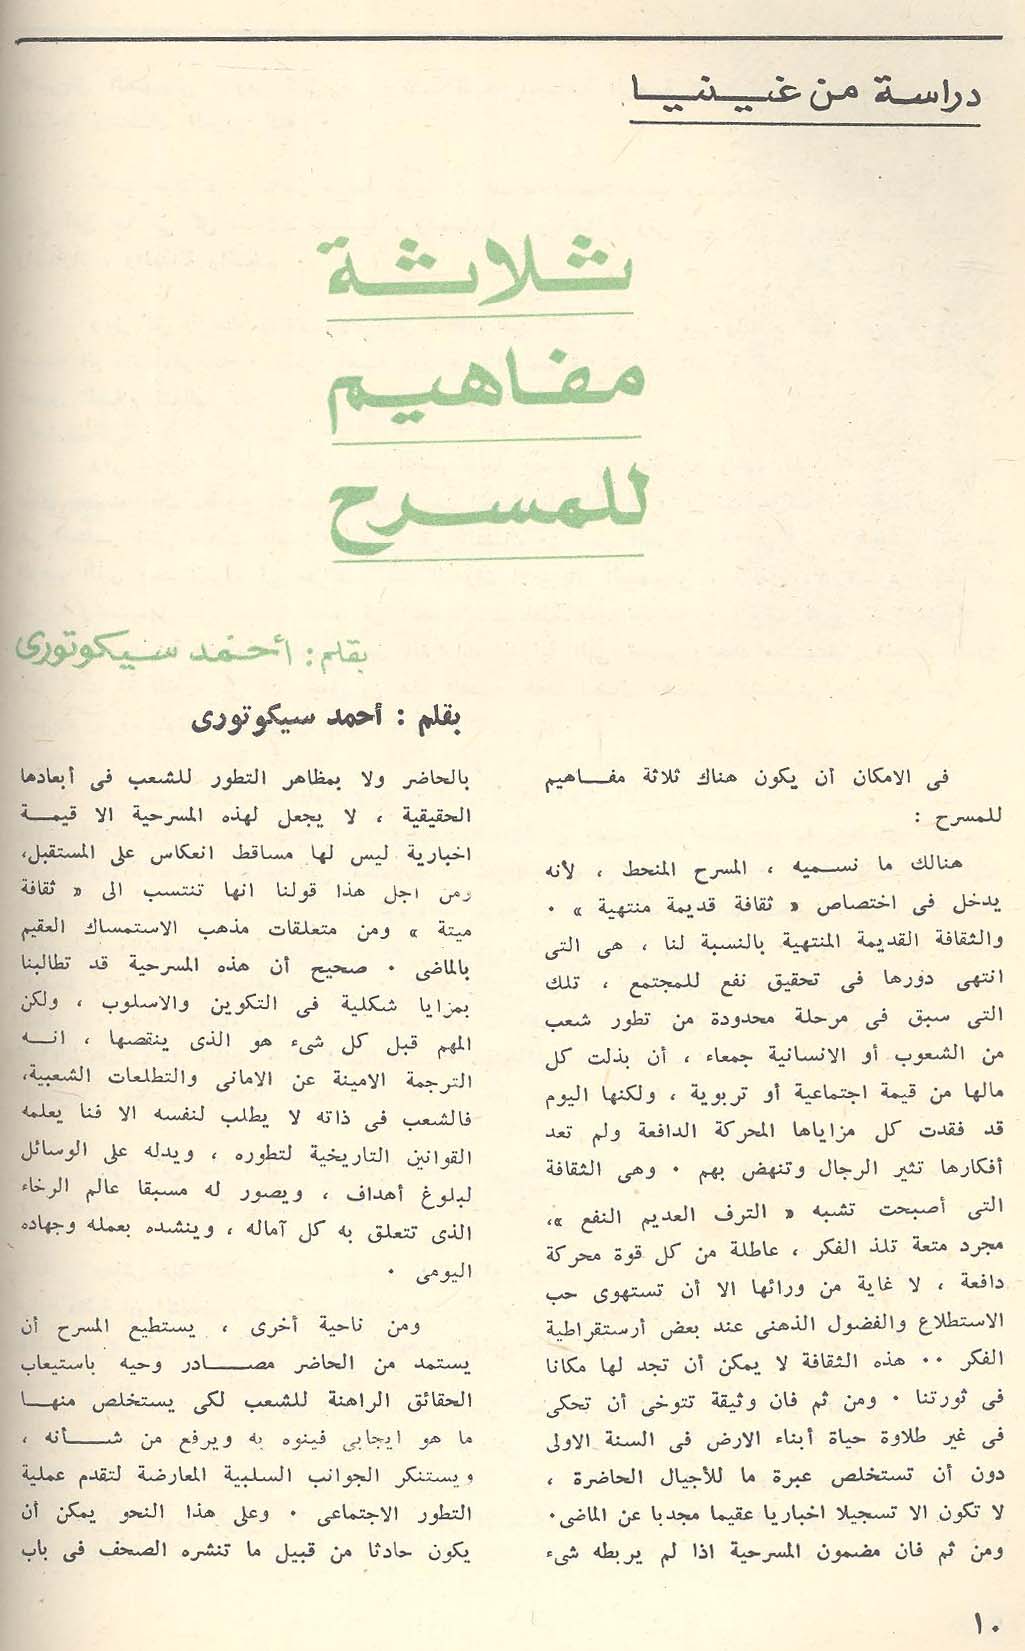 دراسة من غينيا
ثلاثة
مفاهيم
للمسرح
بقلم : أحمد سيكوتورى
بقلم : أحمد سيكوتورى
فى الامكان أن يكون هناك ثلاثة مفاهيم
للمسرح :
هنالك ما نسميه ، المسرح المنحط ، لأنه
يدخل فى اختصاص « ثقافة قديمة منتهية » ٠
والثقافة القديمة المنتهية بالنسبة لنا ، هى التى
انتهى دورها فى تحقيق نفع للمجتمع ، تلك
التى سبق فى مرحلة محدودة من تطور شعب
من الشعوب أو الانسانية جمعاء ، أن بذلت كل
مالها من قيمة اجتماعية أو تربوية ، ولكنها اليوم
قد فقدت كل مزاياها المحركة الدافعة ولم تعد
أفكارها تثير الرجال وتنهض بهم ٠ وهى الثقافة
التى أصبحت تشبه « الترف العديم النفع »،
مجرد متعة تلذ الفكر ، عاطلة من كل قوة محركة
دافعة ، لا غاية من ورائها الا أن تستهوى حب
الاستطلاع والفضول الذهنى عند بعض أرستقراطية
الفكر ٠٠ هذه الثقافة لا يمكن أن تجد لها مكانا
فى ثورتنا ٠ ومن ثم فان وثيقة تتوخى أن تحكى
فى غير طلاوة حياة أبناء الارض فى السنة الاولى
دون أن تستخلص عبرة ما للأجيال الحاضرة ،
لا تكون الا تسجيلا اخباريا عقيما مجدبا عن الماضى٠
ومن ثم فان مضمون المسرحية اذا لم يربطه شىء
بالحاضر ولا بمظاهر التطور للشعب فى أبعادها
الحقيقية ، لا يجعل لهذه المسرحية الا قيمة
اخبارية ليس لها مساقط انعكاس على المستقبل،
ومن اجل هذا قولنا انها تنتسب الى « ثقافة
ميتة » ومن متعلقات مذهب الاستمساك العقيم
بالماضى ٠ صحيح أن هذه المسرحية قد تطالبنا
بمزايا شكلية فى التكوين والاسلوب ، ولكن
المهم قبل كل شىء هو الذى ينقصها ، انه
الترجمة الامينة عن الامانى والتطلعات الشعبية،
فالشعب فى ذاته لا يطلب لنفسه الا فنا يعلمه
القوانين التاريخية لتطوره ، ويدله على الوسائل
لبلوغ أهداف ، ويصور له مسبقا عالم الرخاء
الذى تتعلق به كل آماله ، وينشده بعمله وجهاده
اليومى ٠
ومن ناحية أخرى ، يستطيع المسرح أن
يستمد من الحاضر مصادر وحيه باستيعاب
الحقائق الراهنة للشعب لكى يستخلص منها
ما هو ايجابى فينوه به ويرفع من شأنه ،
ويستنكر الجوانب السلبية المعارضة لتقدم عملية
التطور الاجتماعى ٠ وعلى هذا النحو يمكن أن
يكون حادثا من قبيل ما تنشره الصحف فى باب
١٠